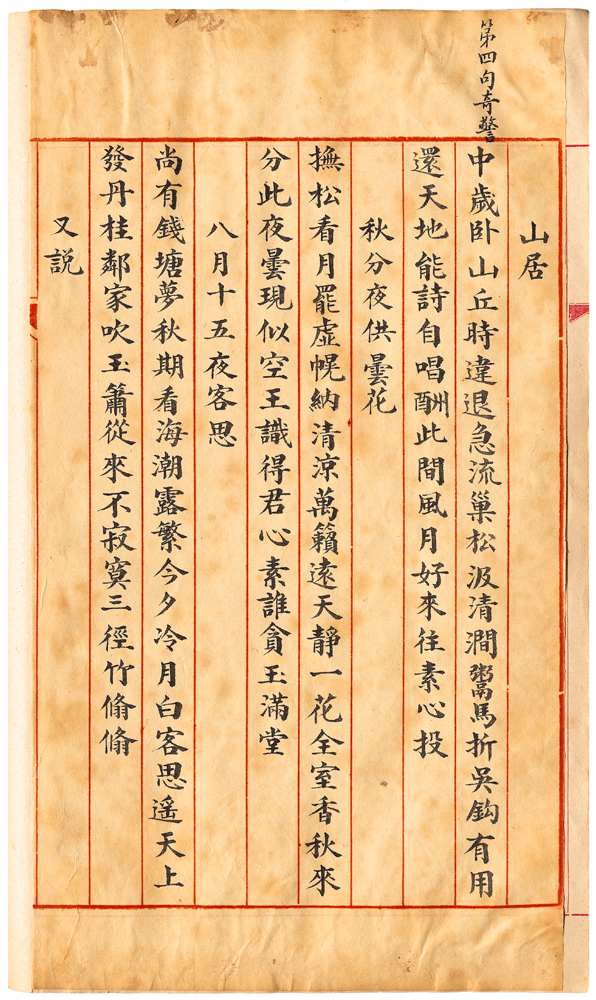 第四句奇警
山居
中歲卧山丘時違退急流巢松汲清澗鬻馬折吳鈎有用
還天地能詩自唱酬此間風月好來往素心投
秋分夜供曇花
撫松看月罷虛幌納清涼萬籟遠天靜一花全室香秋來
分此夜曇現似空王識得君心素誰貪玉滿堂
八月十五夜客思
尚有錢塘夢秋期看海潮露繁今夕冷月白客思遙天上
發丹桂鄰家吹玉簫從來不寂寞三徑竹翛翛
又説